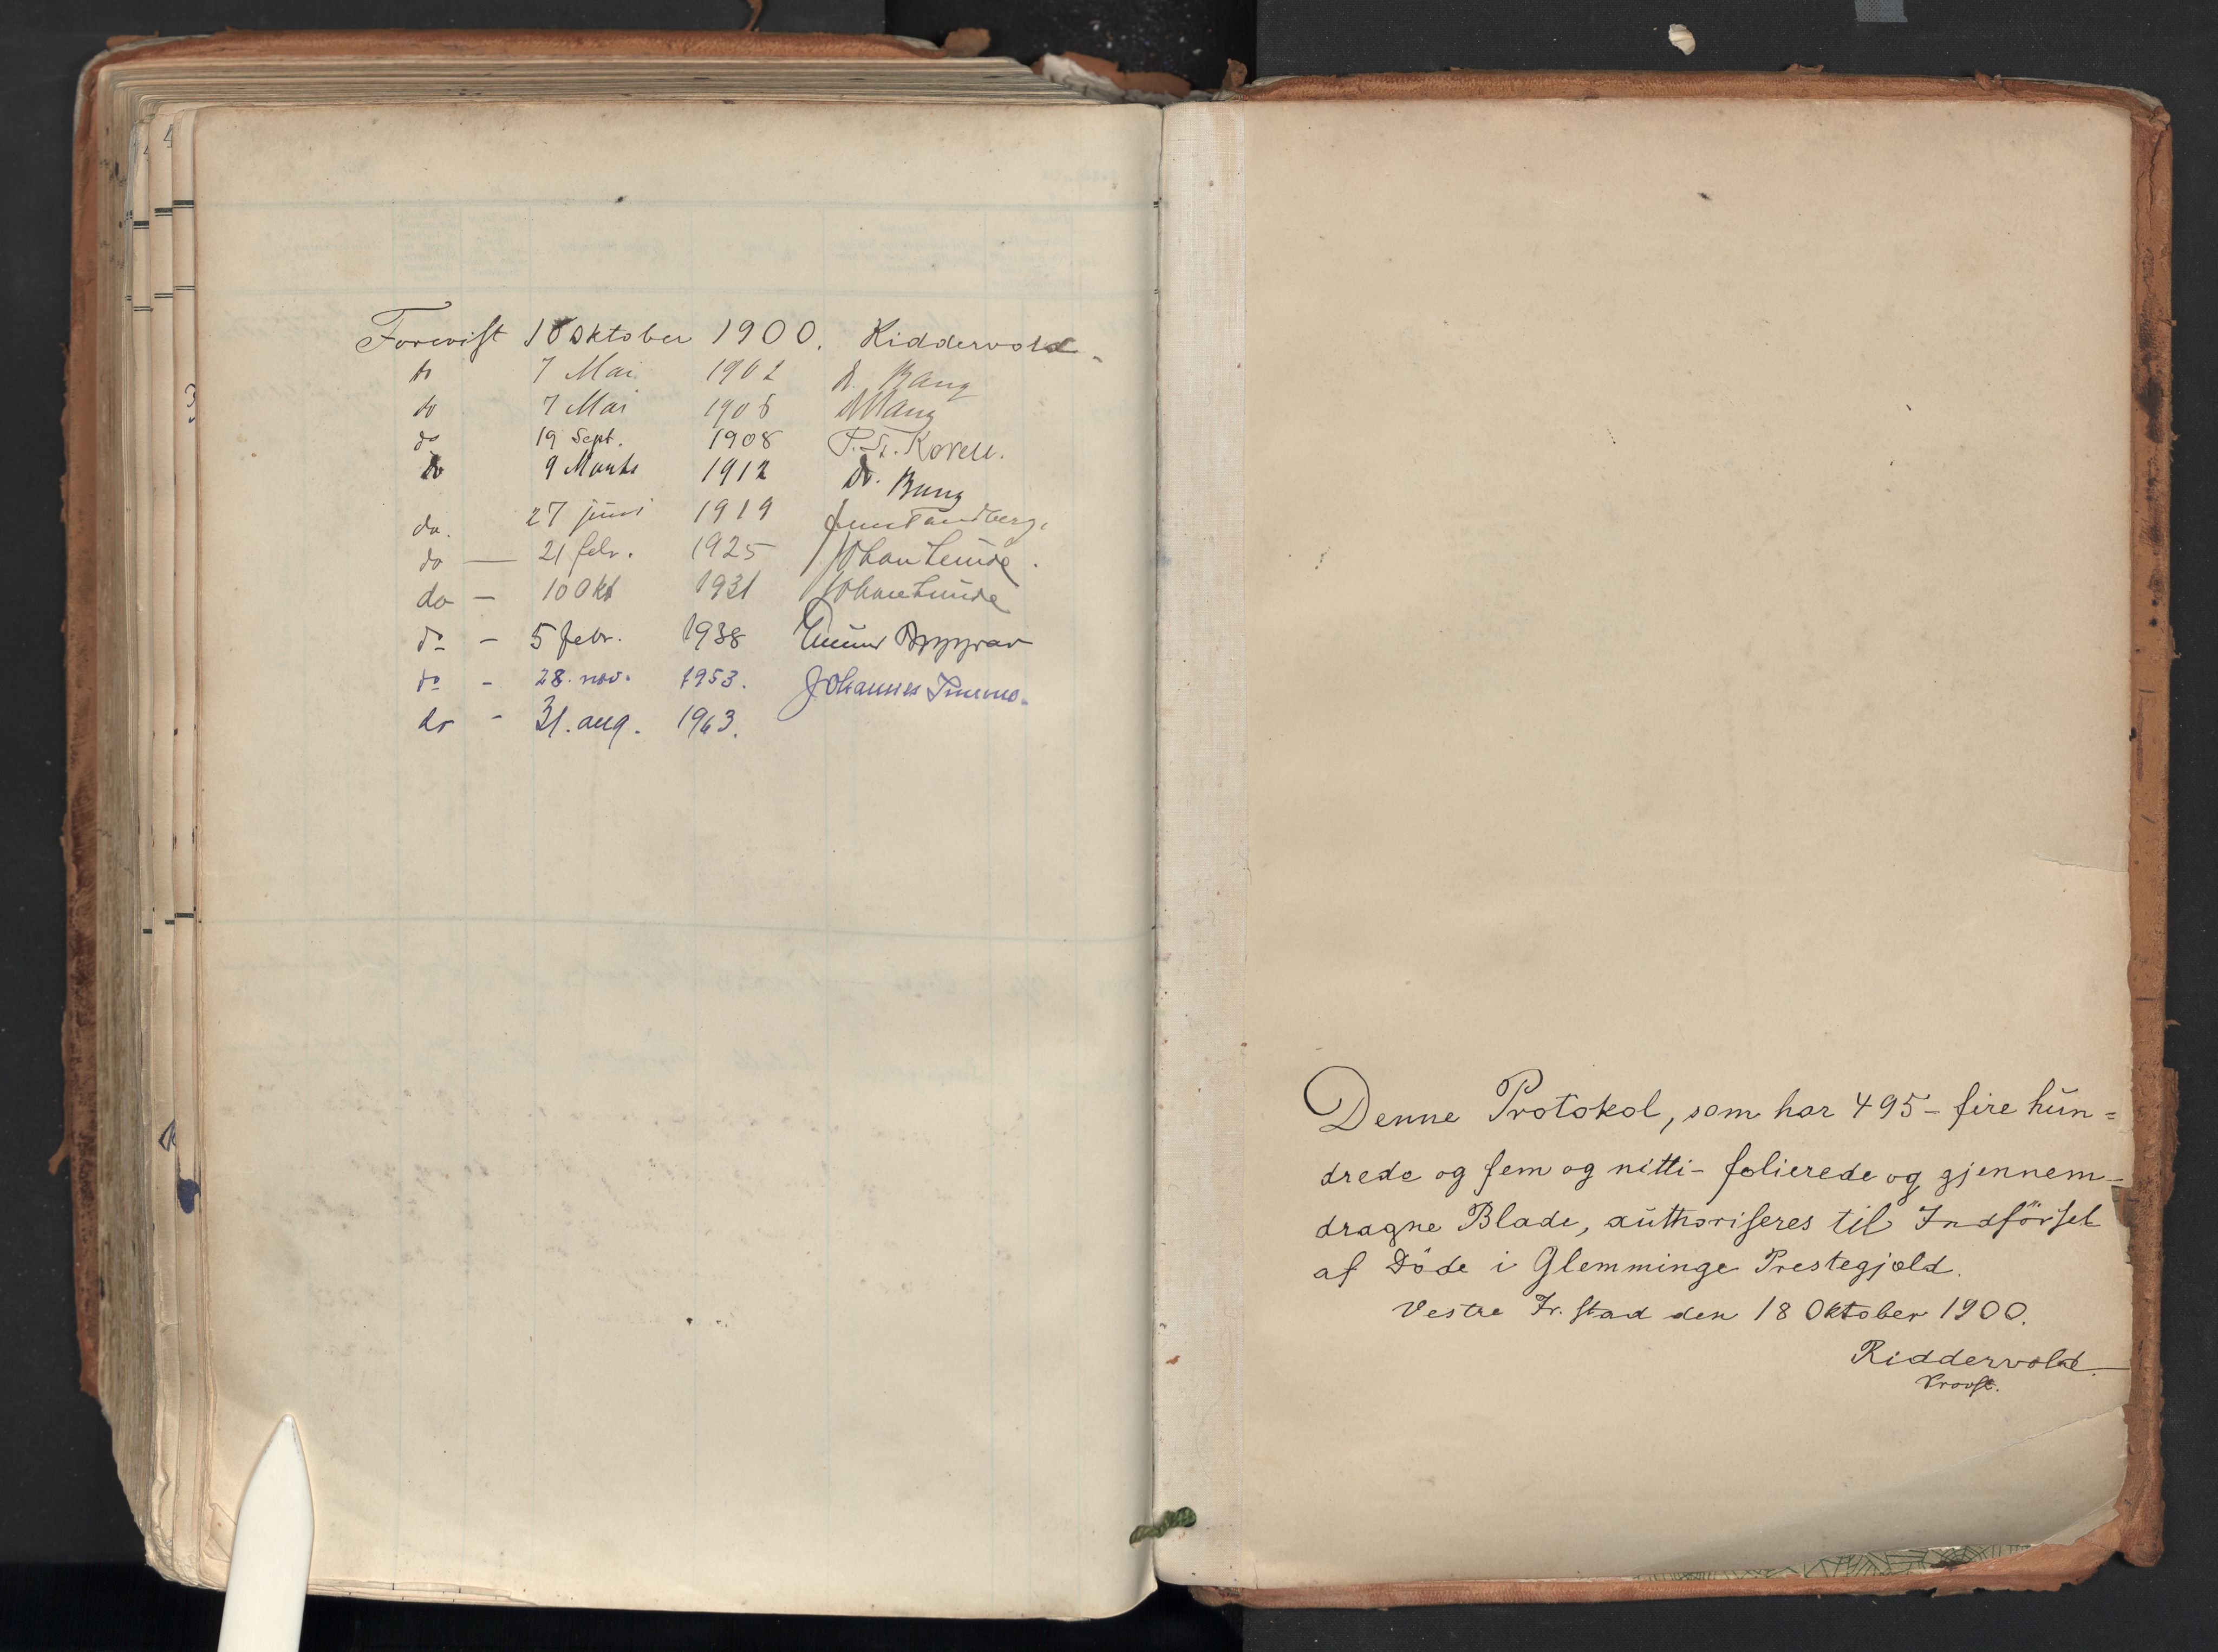 Forevist 18 Oktober 1900. Riddervold
do 7 Mai 1902 A. Bang
do 7 Mai 1905 A Bang
do 19 Sept. 1908
do 9 Marts 1912 Dr. Bang
do. 27 juni 1919 Jens Tandberg.
do — 21 febr. 1925 Johan Lunde.
do — 10 Okt 1931 Johan Lunde
do — 5 febr. 1938 Eivind Berggrav
do - 28. nov. 1953. Johannes Smemo.
do - 31. aug. 1963.
Denne Protokol, som har 495 - fire hun=
drede og fem og nitti - folierede og gjennem-
dragne Blade, authoriseres til Indförsel
af Döde i Glemminge Prestegjæld.
Vestre Fr.stad den 18 Oktober 1900.
Riddervold.
Provst.